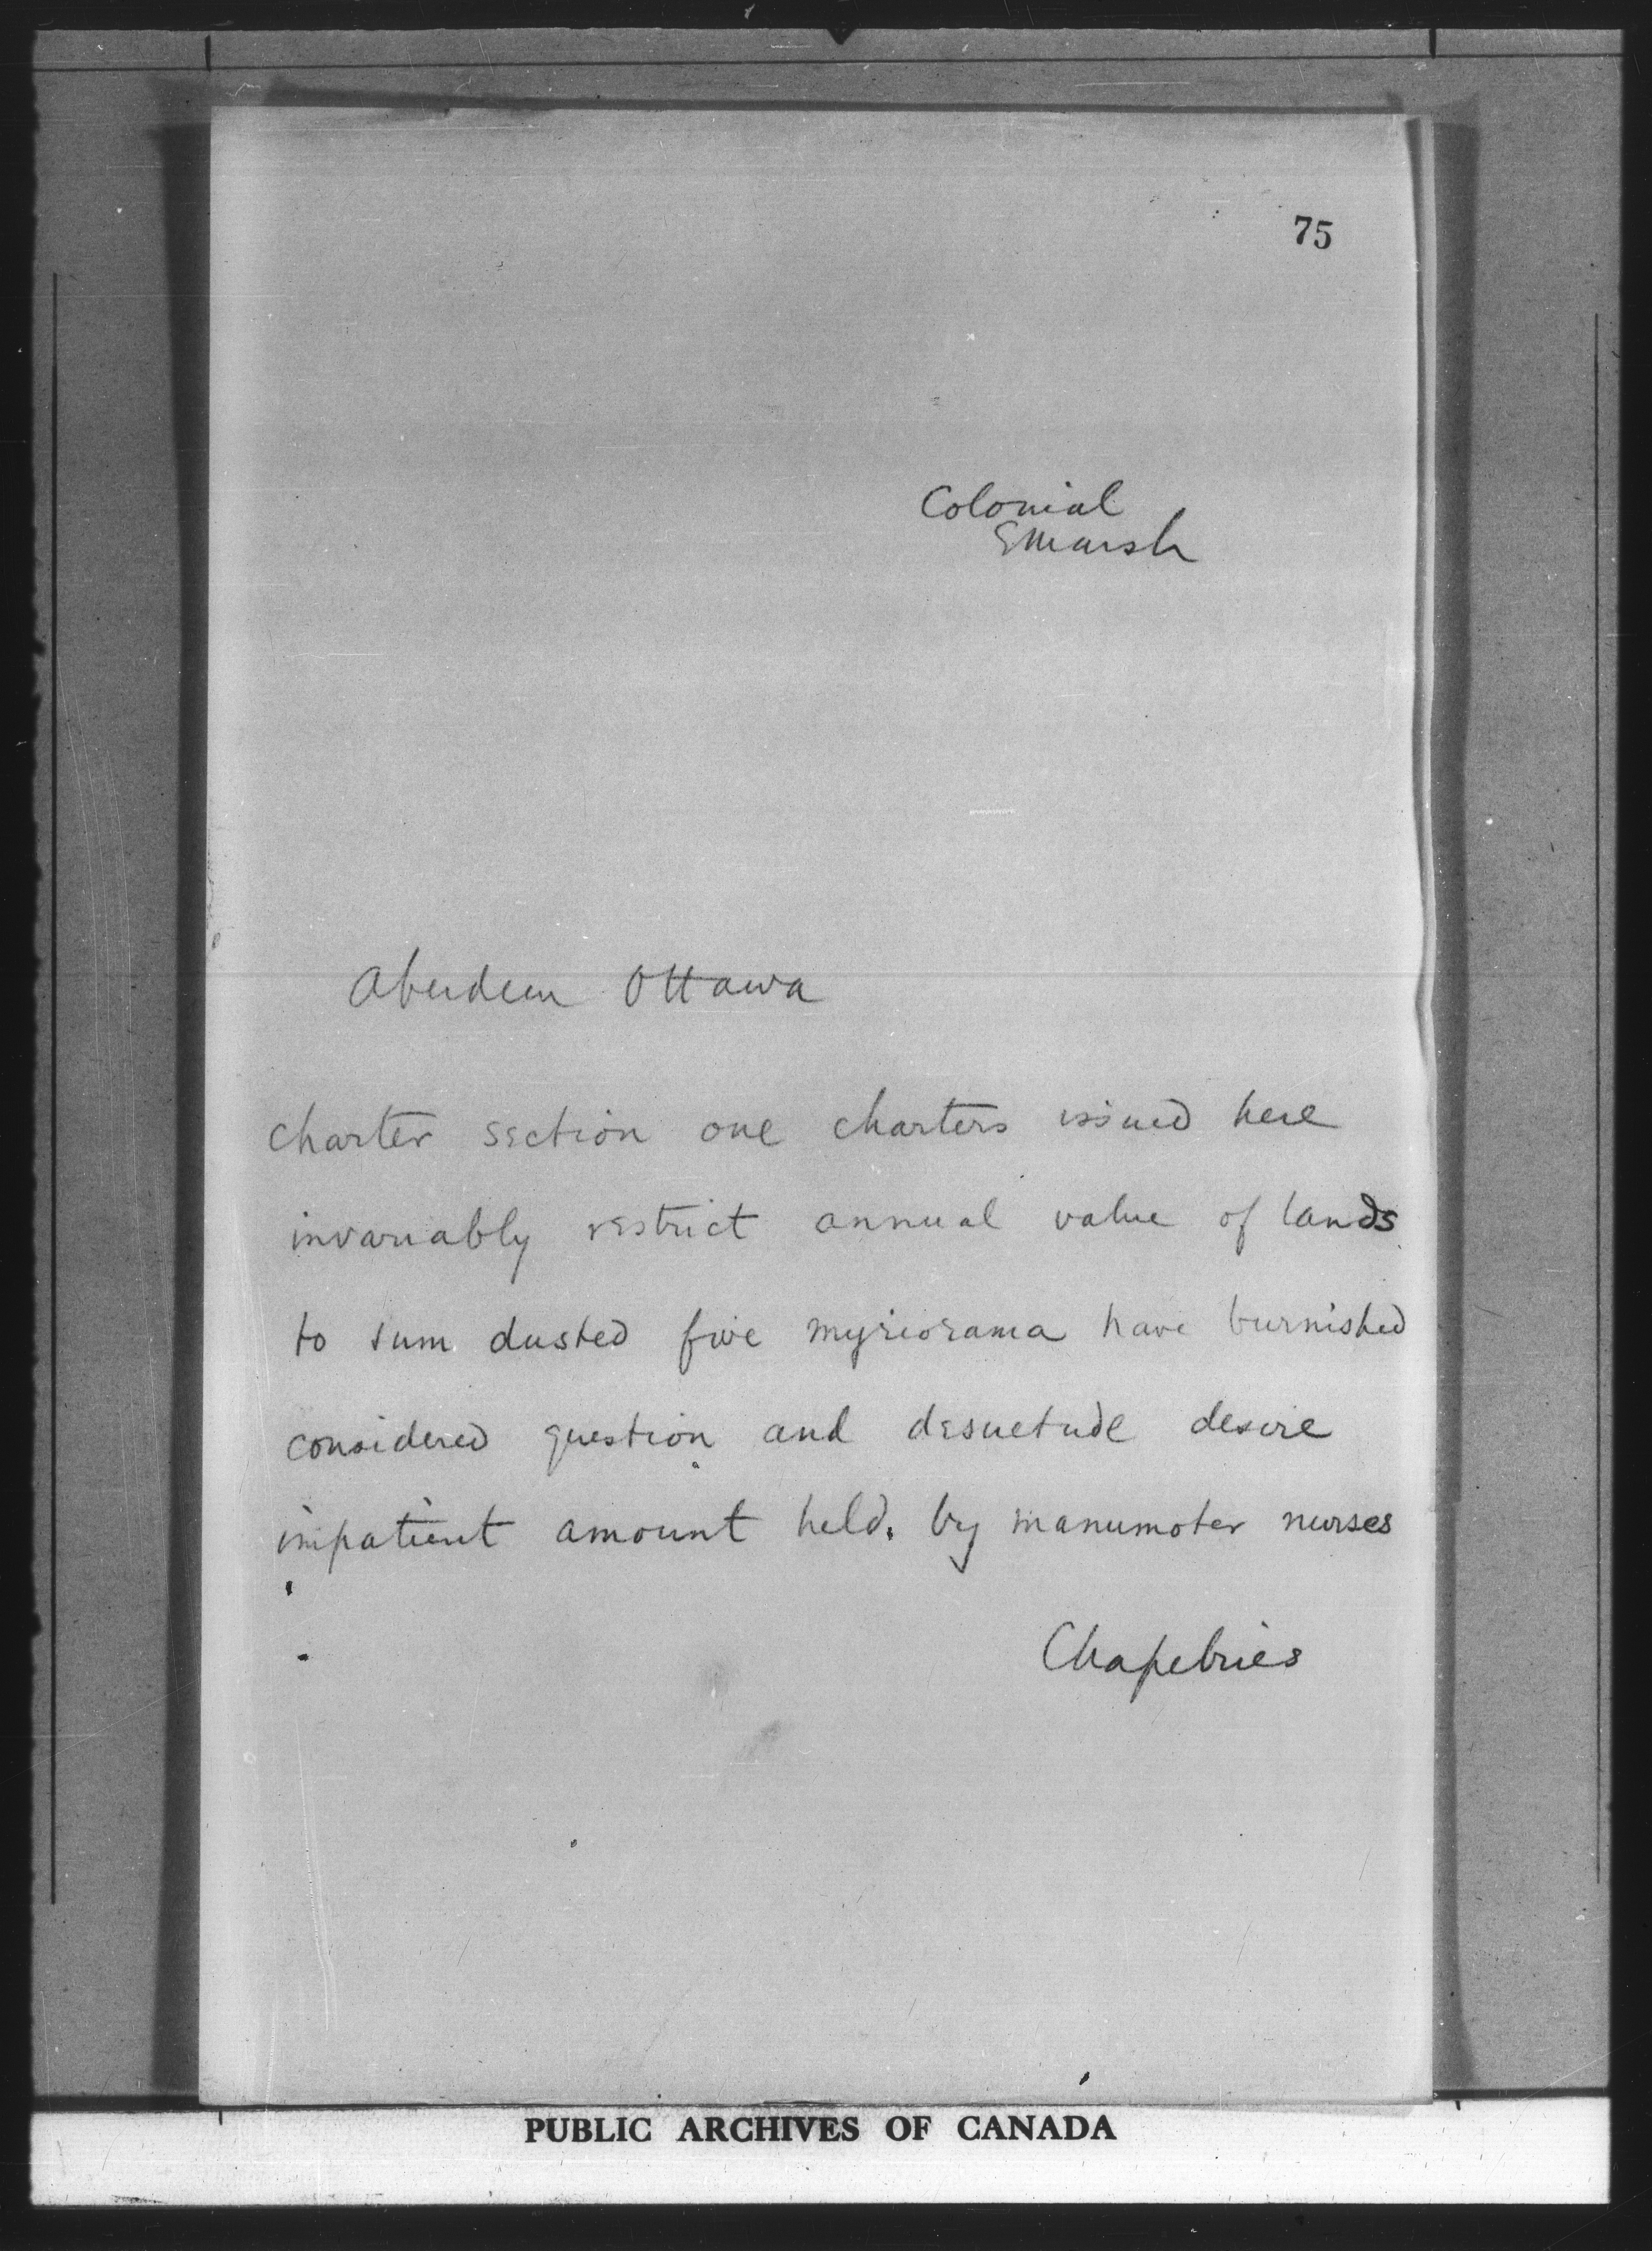 75
Colonial
EMarsh
Aberdeen Ottawa
charter section one charters issued here
invariably restrict annual value of lands
to sum dusted five myriorama have burnished
considered question and desuetude desire
impatient amount held. by manumoter nurses
Chapelries
PUBLIC ARCHIVES OF CANADA